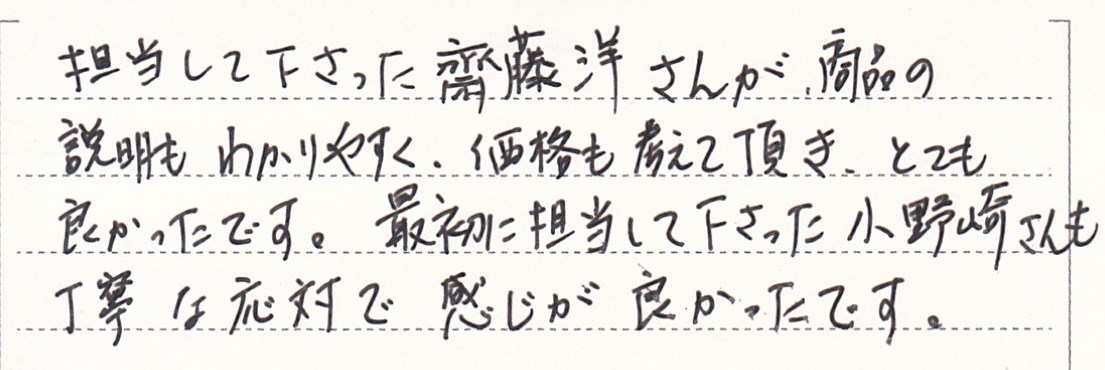 担当して下さった齋藤洋さんが、商品の
説明もわかりやすく、価格も考えて頂き、とても
良かったです。最初に担当して下さった小野崎さんも
丁寧な応対で感じが良かったです。